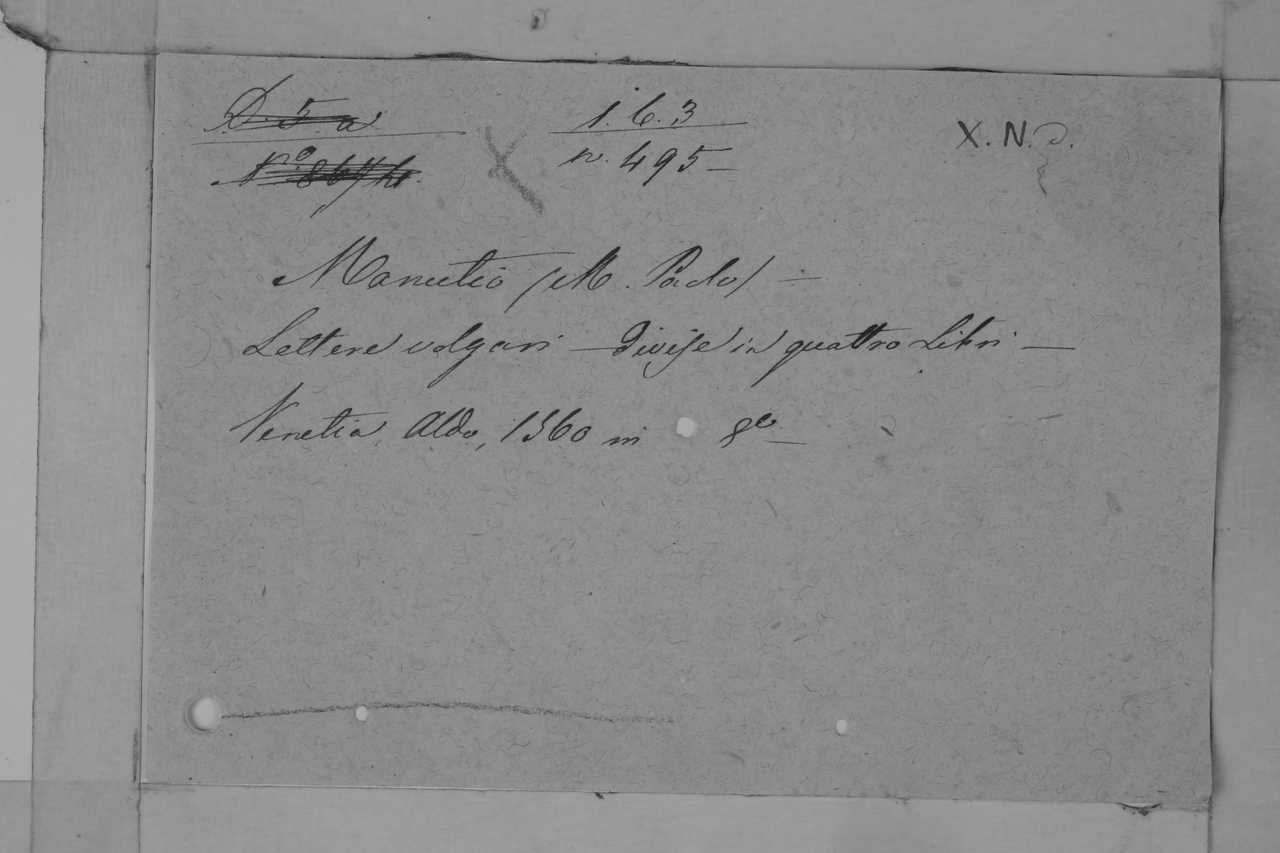 D. 5. a
1. 6. 3
X. N.
Nº
n. 495 –
Manutio (M. Paolo) –
Lettere volgari – divise in quattro Libri –
Venetia, Aldo, 1560 in 8º –